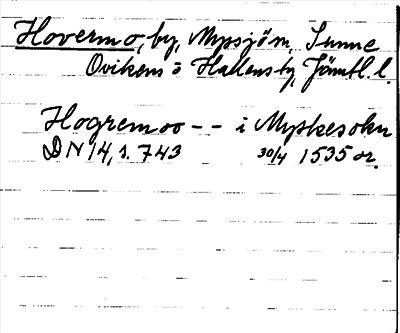 Hovermo, by, Myssjöm, Sunne
Ovikens o Hallens tg, Jämtl. l.
Hogremoo -- i Myskesokn
DN 14, s. 743 30/4 1535 or.